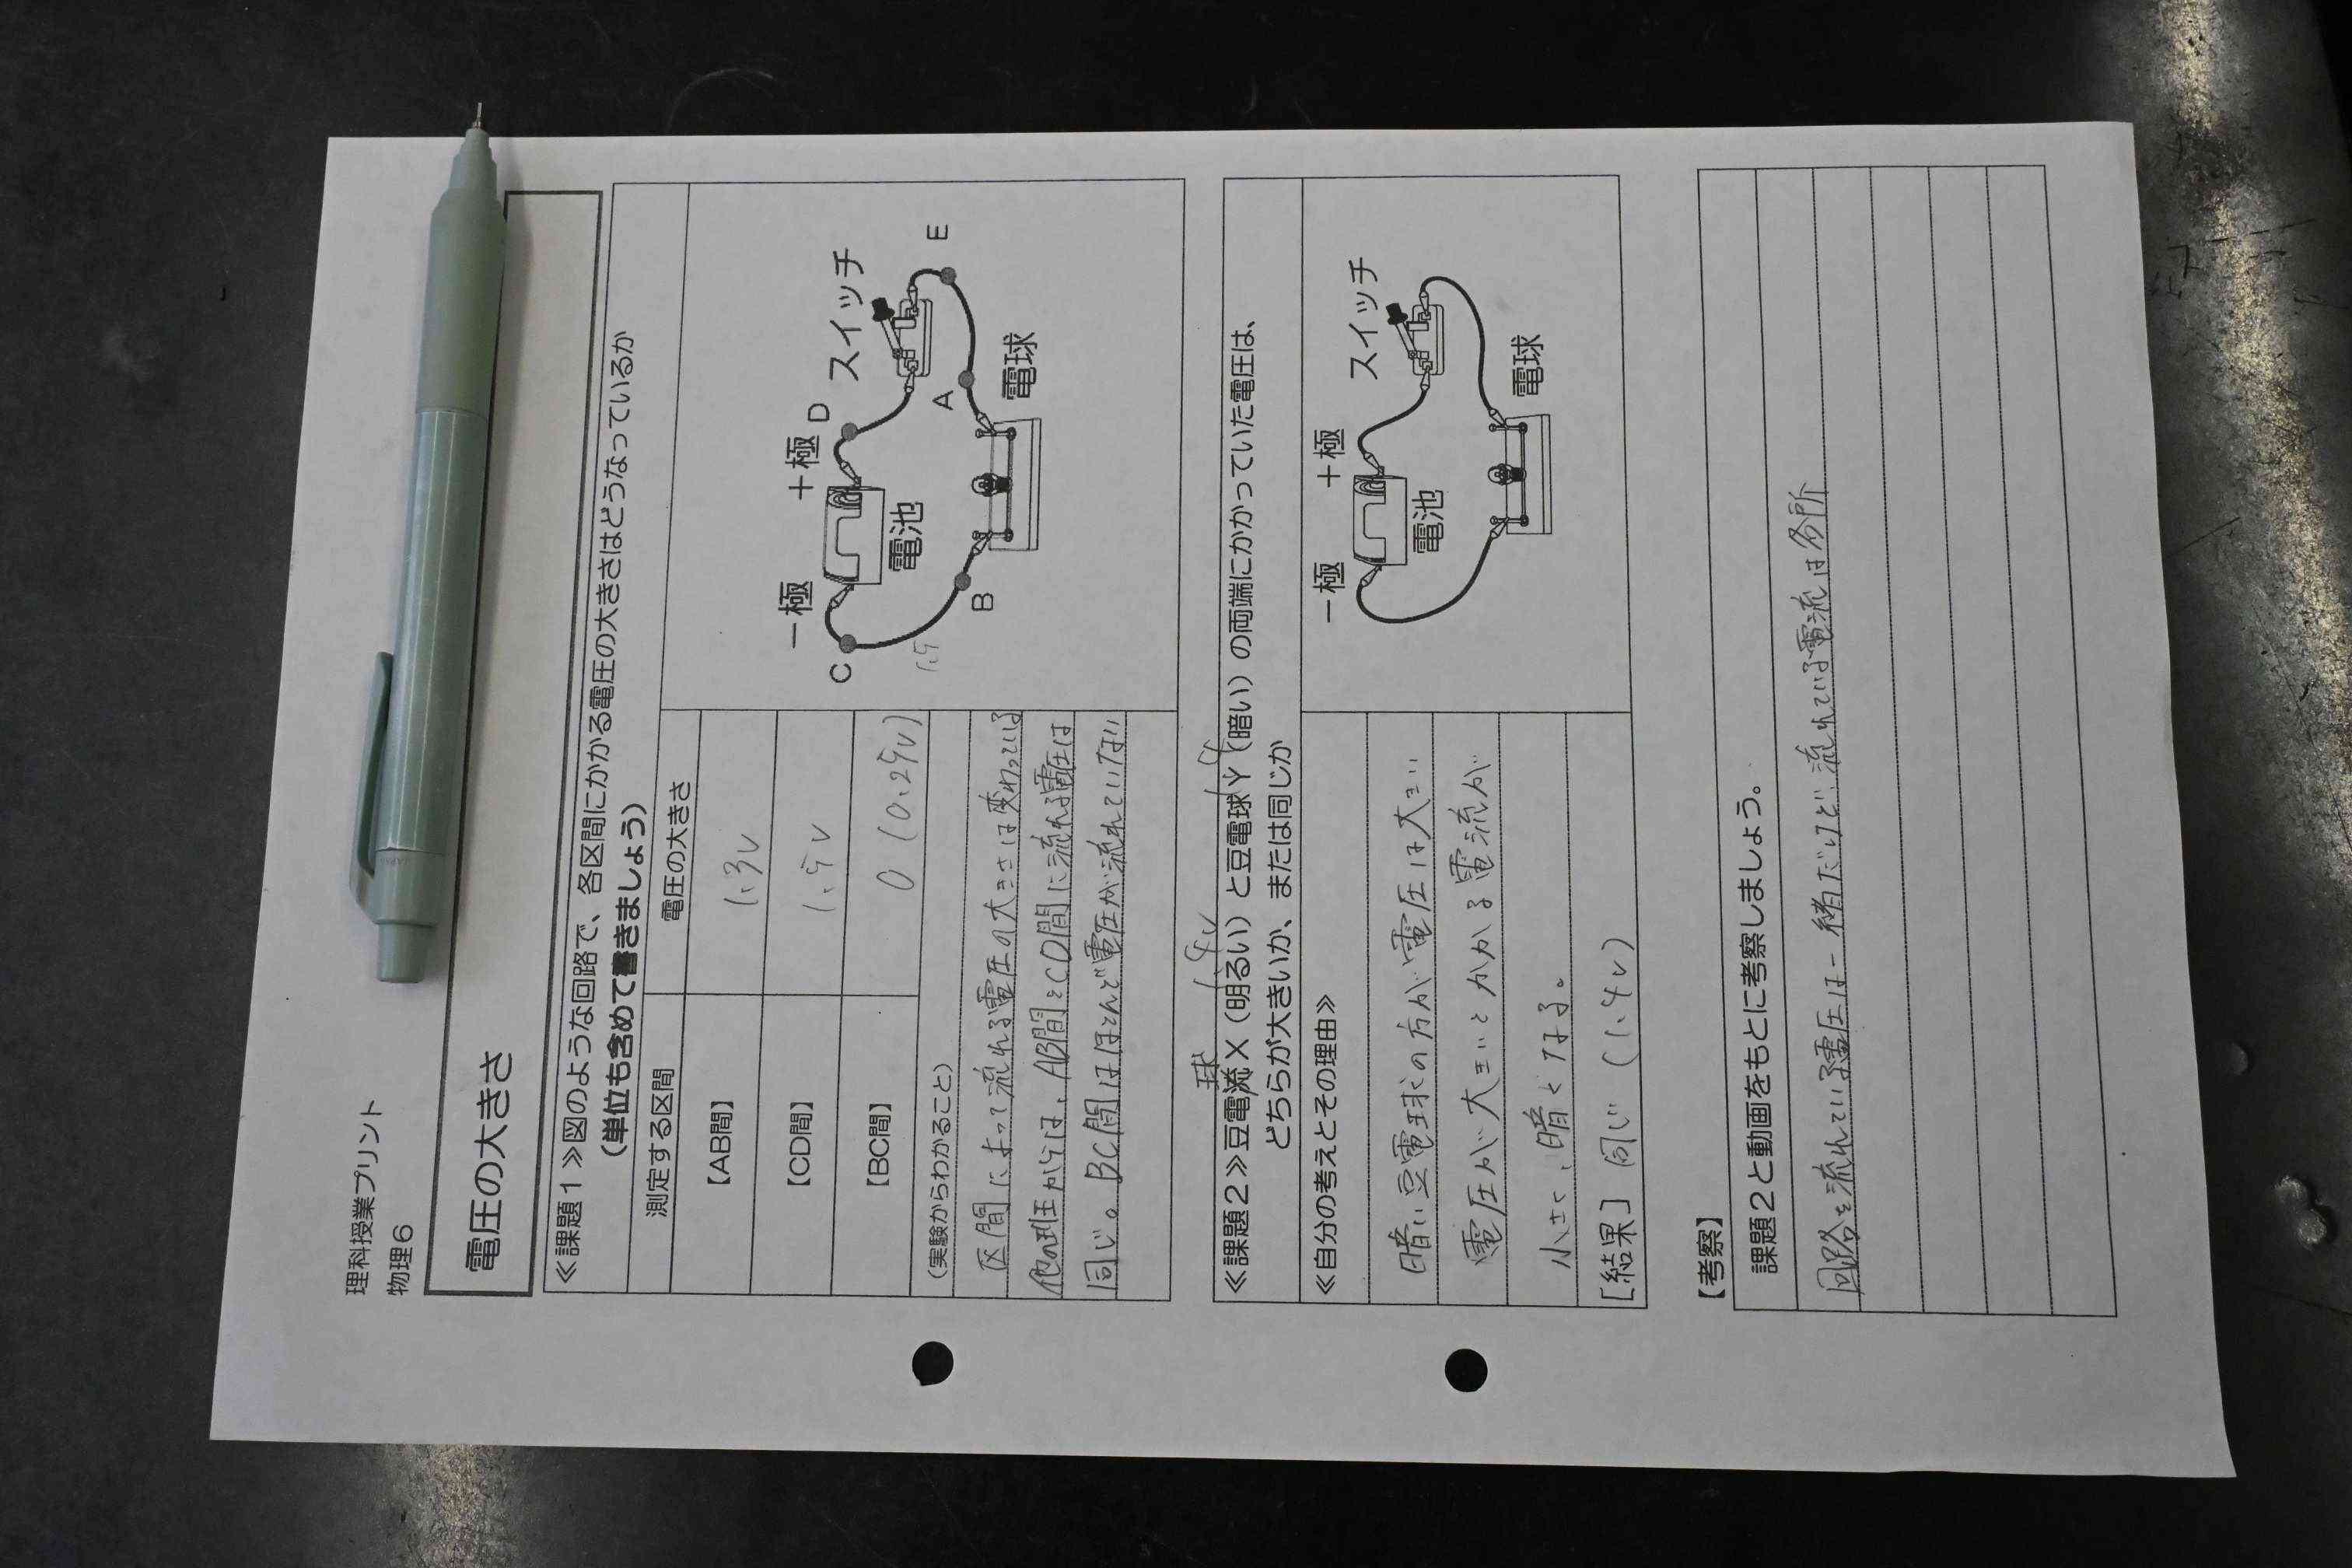 理科授業プリント
物理6
電圧の大きさ
≪課題1≫図のような回路で、各区間にかかる電圧の大きさはどうなっているか
(単位も含めて書きましょう)
測定する区間
電圧の大きさ
【AB間】
1.3V
【CD間】
1.5V
【BC間】
0(0.25V)
(実験からわかること)
区間によって流れる電圧の大きさは変わっている
他の班からは、AB間とCD間に流れる電圧は
同じ。BC間はほとんど電圧が流れていない
-極
+極
スイッチ
電池
電球
C
D
A
E
B
1.5
球
1.4V
≪課題2≫豆電流X(明るい)と豆電球Y(暗い)の両端にかかっていた電圧は、
どちらが大きいか、または同じか
≪自分の考えとその理由≫
暗い豆電球の方が電圧は大きい
電圧が大きいとかかる電流が
小さく、暗くなる。
[結果] 同じ(1.4V)
-極
+極
スイッチ
電池
電球
【考察】
課題2と動画をもとに考察しましょう。
回路を流れている電圧は一緒だけど、流れている電流は各所